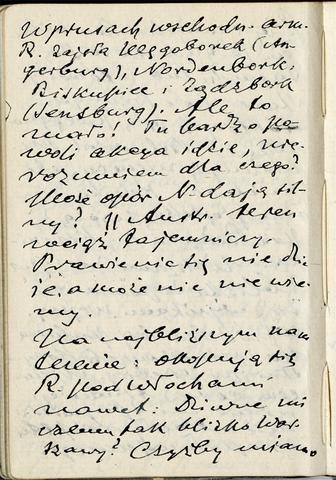 W prusach wschodn. arm.
R. zajęła Węgoborek (An-
gerburg), Nordenbork.
Biskupiec i Ządzbork
(Sensburg). Ale to
mało! Tu bardzo po-
woli akcya idzie, nie
rozumiem dla czego?
Może opór N. dają sil-
ny? W Austr. teren
wciąż tajemniczy.
Prawie nic się nie dzie-
je, a może nic nie wie-
my.
Na najbliższym nam
terenie: okopują się
R. pod Włochami
nawet. Dziwne mi
tak blisko War-
szawy? Czyżby miano